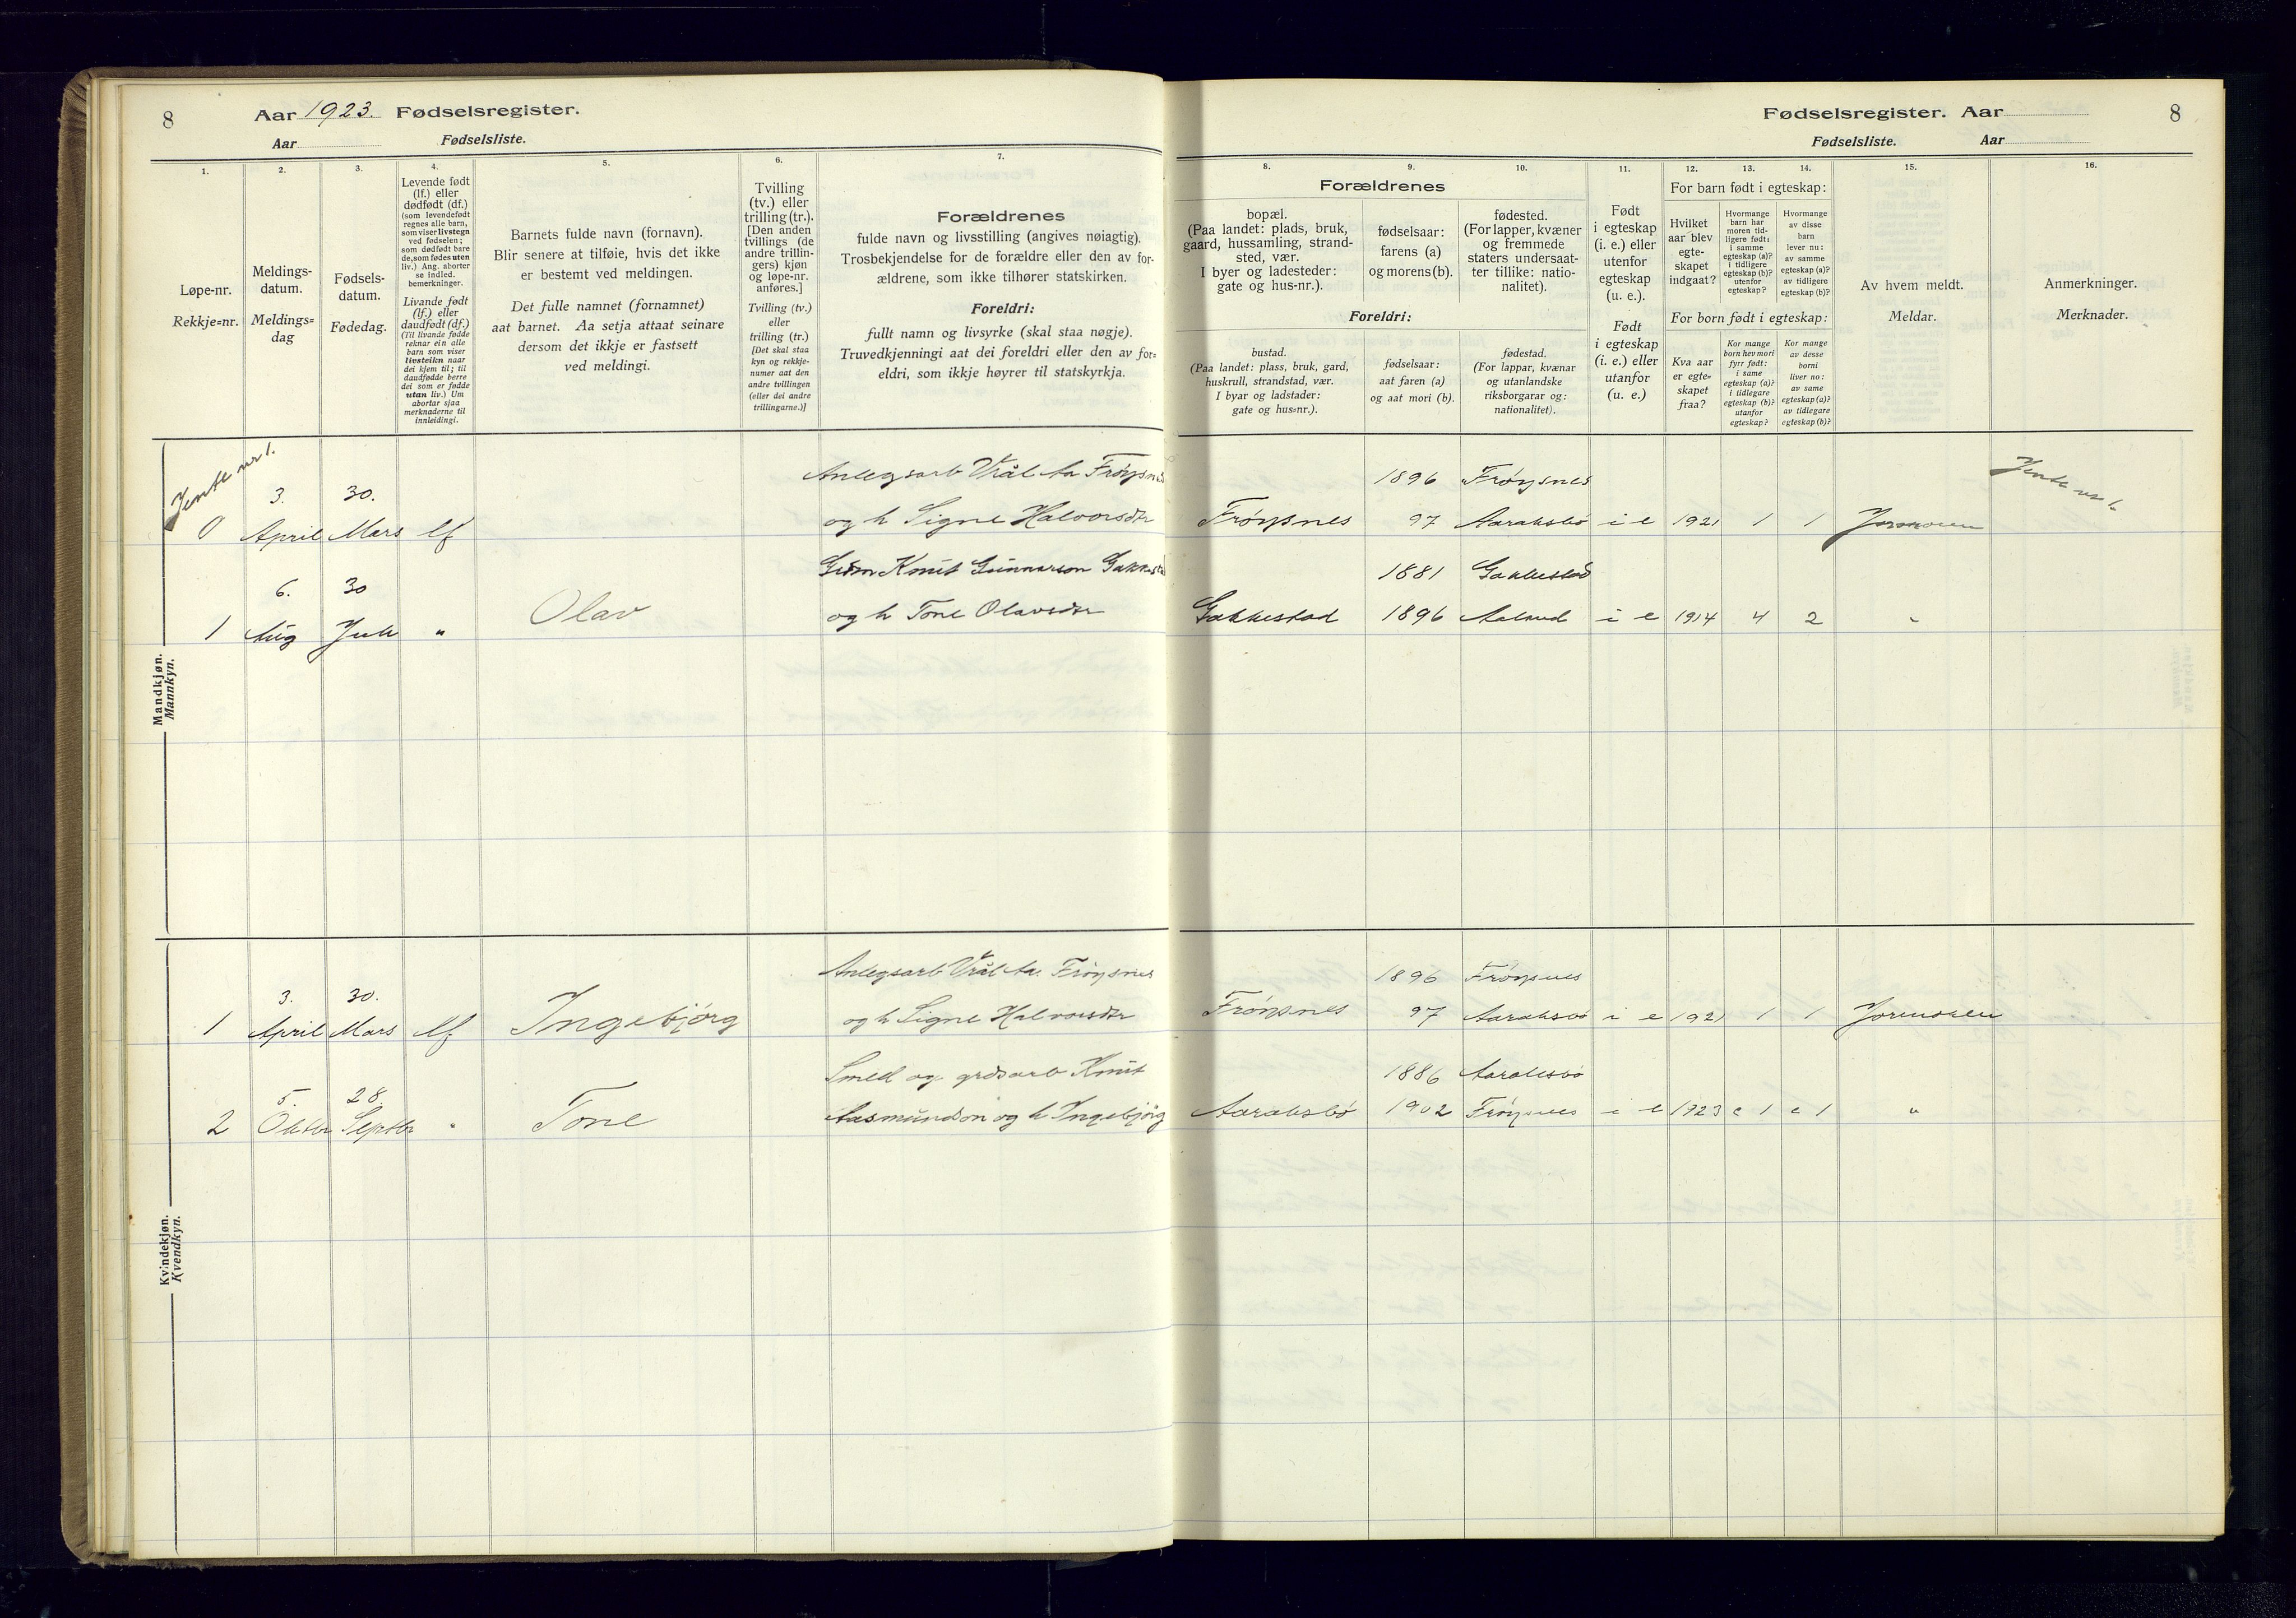 8 Aar 1923. Fødselsregister.
Aar Fødselsliste.
Fødselsregister. Aar 8
Fødselsliste. Aar
1.
Løpe-nr.
Rekkje=nr.
2.
Meldings-
datum.
Meldings=
dag
3.
Fødsels-
datum.
Fødedag.
4.
Levende født
(lf.) eller
dødfødt (df.)
(som levendefødt
regnes alle barn,
som viser livstegn
ved fødselen;
som dødfødt bare
de, som fødes uten
liv.) Ang. aborter
se indled.
bemerkninger.
Livande født
(lf.) eller
daudfødt (df.)
(Til livande fødde
reknar ein alle
barn som viser
livsteikn naar
dei kjem til; til
daudfødde berre
dei som er fødde
utan liv.) Um
abortar sjaa
merknaderne til
innleidingi.
5.
Barnets fulde navn (fornavn).
Blir senere at tilføie, hvis det ikke
er bestemt ved meldingen.
Det fulle namnet (fornamnet)
aat barnet. Aa setja attaat seinare
dersom det ikkje er fastsett
ved meldingi.
6.
Tvilling
(tv.) eller
trilling (tr.).
[Den anden
tvillings (de
andre trillin-
gers) kjøn
og løpe-nr.
anføres.]
Tvilling (tv.)
eller
trilling (tr.)
[Det skal staa
kyn og rekkje-
numer aat den
andre tvillingen
(eller dei andre
trillingarne.)]
7.
Forældrenes
fulde navn og livsstilling (angives nøiagtig).
Trosbekjendelse for de forældre eller den av for-
ældrene, som ikke tilhører statskirken.
Foreldri:
fullt namn og livsyrke (skal staa nøgje).
Truvedkjenningi aat dei foreldri eller den av for=
eldri, som ikkje høyrer til statskyrkja.
Forældrenes
8.
bopæl.
(Paa landet: plads, bruk,
gaard, hussamling, strand-
sted, vær.
I byer og ladesteder:
gate og hus-nr.).
9.
fødselsaar:
farens (a)
og morens (b).
10.
fødested.
(For lapper, kvæner
og fremmede
staters undersaat-
ter tillike: natio-
nalitet).
Foreldri:
bustad.
(Paa landet: plass, bruk, gard,
huskrull, strandstad, vær.
I byar og ladstader:
gate og hus=nr.).
fødselsaar:
aat faren (a)
og aat mori (b).
fødestad.
(For lappar, kvænar
og utanlandske
riksborgarar og:
nationalitet).
11.
Født
i egteskap
(i. e.) eller
utenfor
egteskap
(u. e.).
Født
i egteskap
(i. e.) eller
utanfor
(u. e.)
12. 13. 14.
For barn født i egteskap:
Hvilket
aar blev
egte-
skapet
indgaat?
Hvormange
barn har
moren tid-
ligere født:
i samme
egteskap (a)?
i tidligere
egteskap (b)?
utenfor
egteskap?
Hvormange
av disse
barn
lever nu:
av samme
egteskap (a)?
av tidligere
egteskap (b)?
For born født i egteskap:
Kva aar
er egte=
skapet
fraa?
Kor mange
born hev mori
fyrr født:
i same
egteskap (a)?
i tidlegare
egteskap (b)?
utanfor
egteskap?
Kor mange
av desse
borni
liver no:
av same
egteskap (a)?
av tidlegare
egteskap (b)?
15.
Av hvem meldt.
Meldar.
16.
Anmerkninger.
Merknader.
Mandkjøn.
Mannkyn.
Jente nr 1.
3. 30. Anlegsarb Vrål Aa Frøysnes 1896 Frøysnes
0 April Mars lf og h Signe Halvorsdtr Frøysnes 97 Aaraksbø i e 1921 1 1
Jente nr 1.
6. 30 Knut Gunnarson 1881
1 Aug Juli " Olav og h Tone Olavsdtr 1896 i e 1914 4 2 "
Kvindekjøn.
Kvendkyn.
3. 30. Anlegsarb Vrål Aa. Frøysnes 1896 Frøysnes
1 April Mars lf Ingebjørg og h Signe Halvorsdtr Frøysnes 97 Aaraksbø i e 1921 1 1
5. 28. Smed og grdsarb Knut 1886 Aaraksbø
2 Oktbr Septbr " Tone Aasmundson og h Ingebjørg Aaraksbø 1902 Frøysnes i e 1923 1 1 "